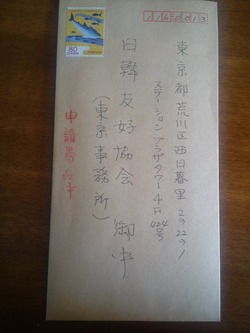 116-0013
東京都荒川区西日暮里2-22-1
ステーションプラザタワー4F 424号
日韓友好協会 御中
(東京事務所)
申請書在中
80